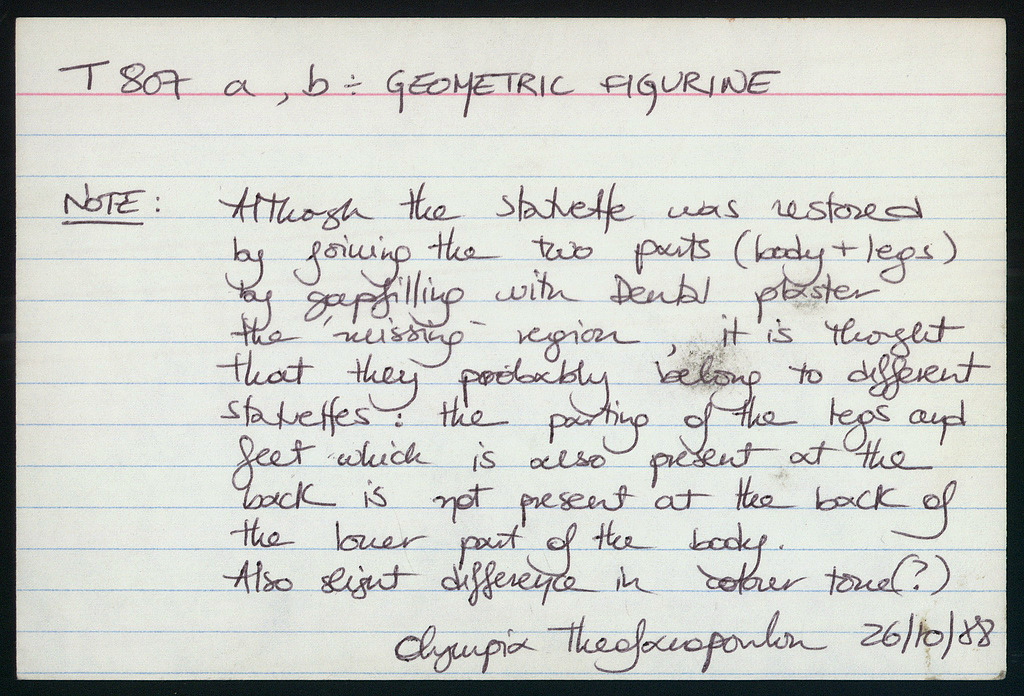 T 807 a, b ÷ GEOMETRIC FIGURINE
NOTE: Although the statuette was restored
by joining the two parts (body + legs)
by gapfilling with Dental plaster
the "missing" region, it is thought
that they probably belong to different
statuettes: the parting of the legs and
feet which is also present at the
back is not present at the back of
the lower part of the body.
Also slight difference in colour tone(?)
Olympia Theofanopoulou 26/10/88